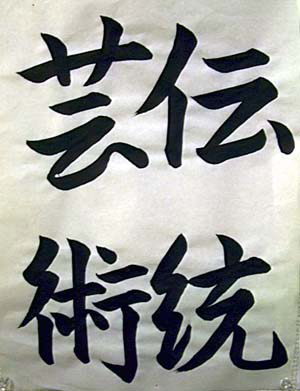 伝統
芸術